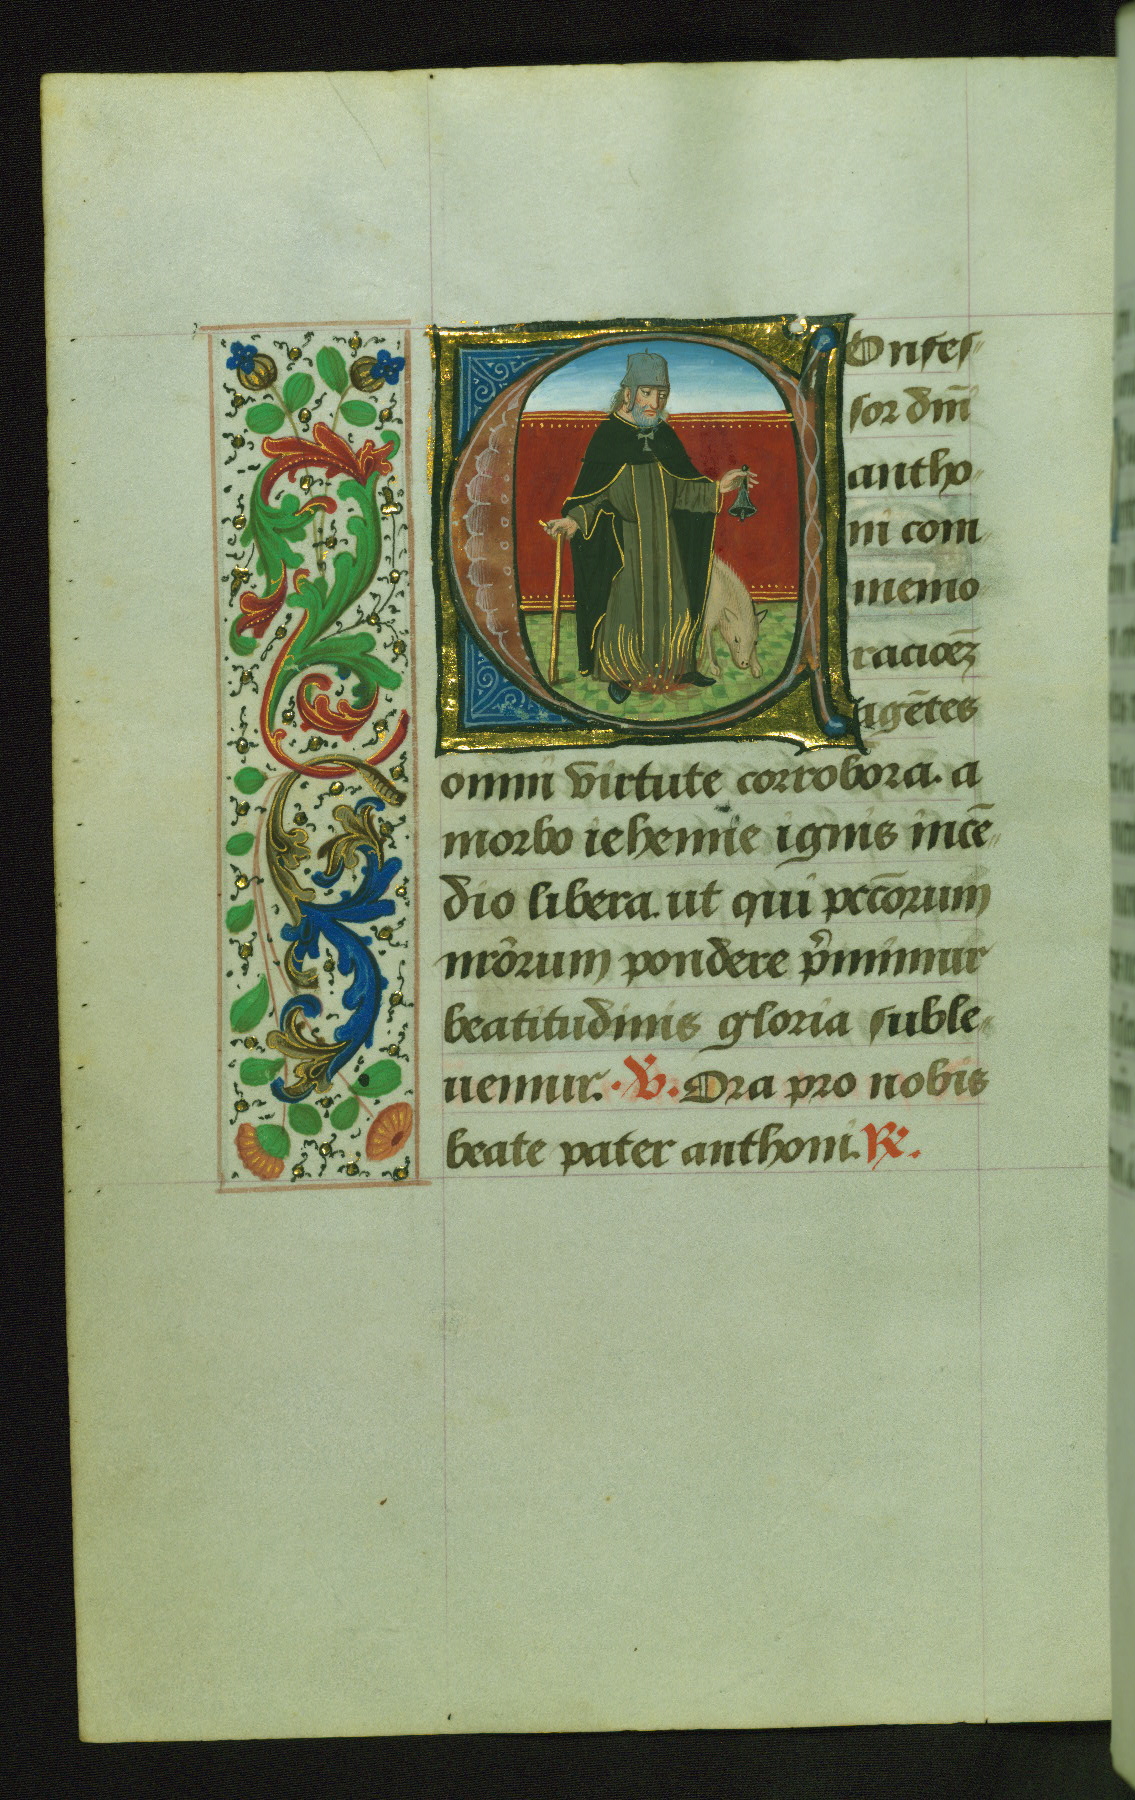 Confes-
sor dm̄
antho-
ni com-
memo
racioēz
agētes
omni virtute corrobora. a
morbo iehennie ignis incē-
dio libera. ut qui pctōrum
nrōrum pondere p̄mimur
beatitudinis gloria suble-
uemur. V. Ora pro nobis
beate pater anthoni. R.